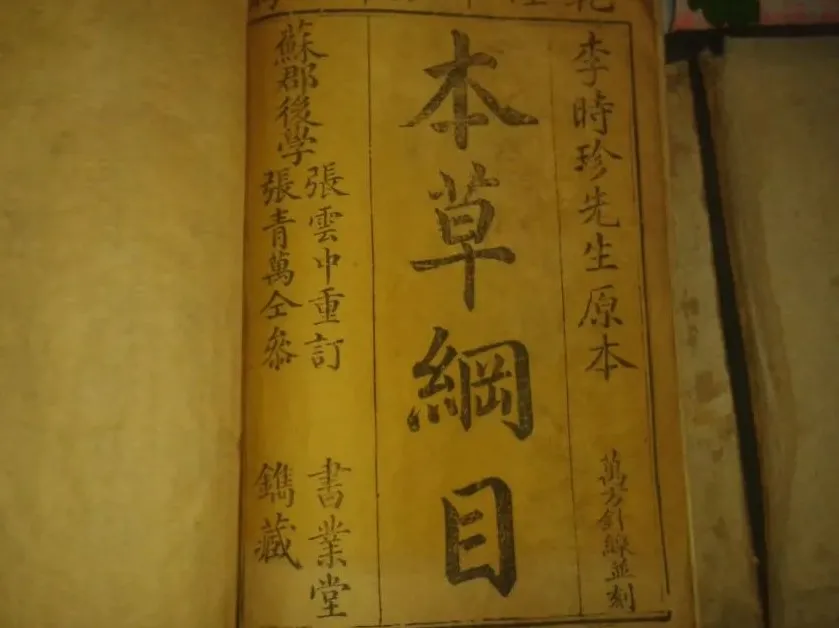 李時珍先生原本
萬方針線並刻
本草綱目
蘇郡後学
張雲中重訂
張青萬仝叅
書業堂
鐫藏